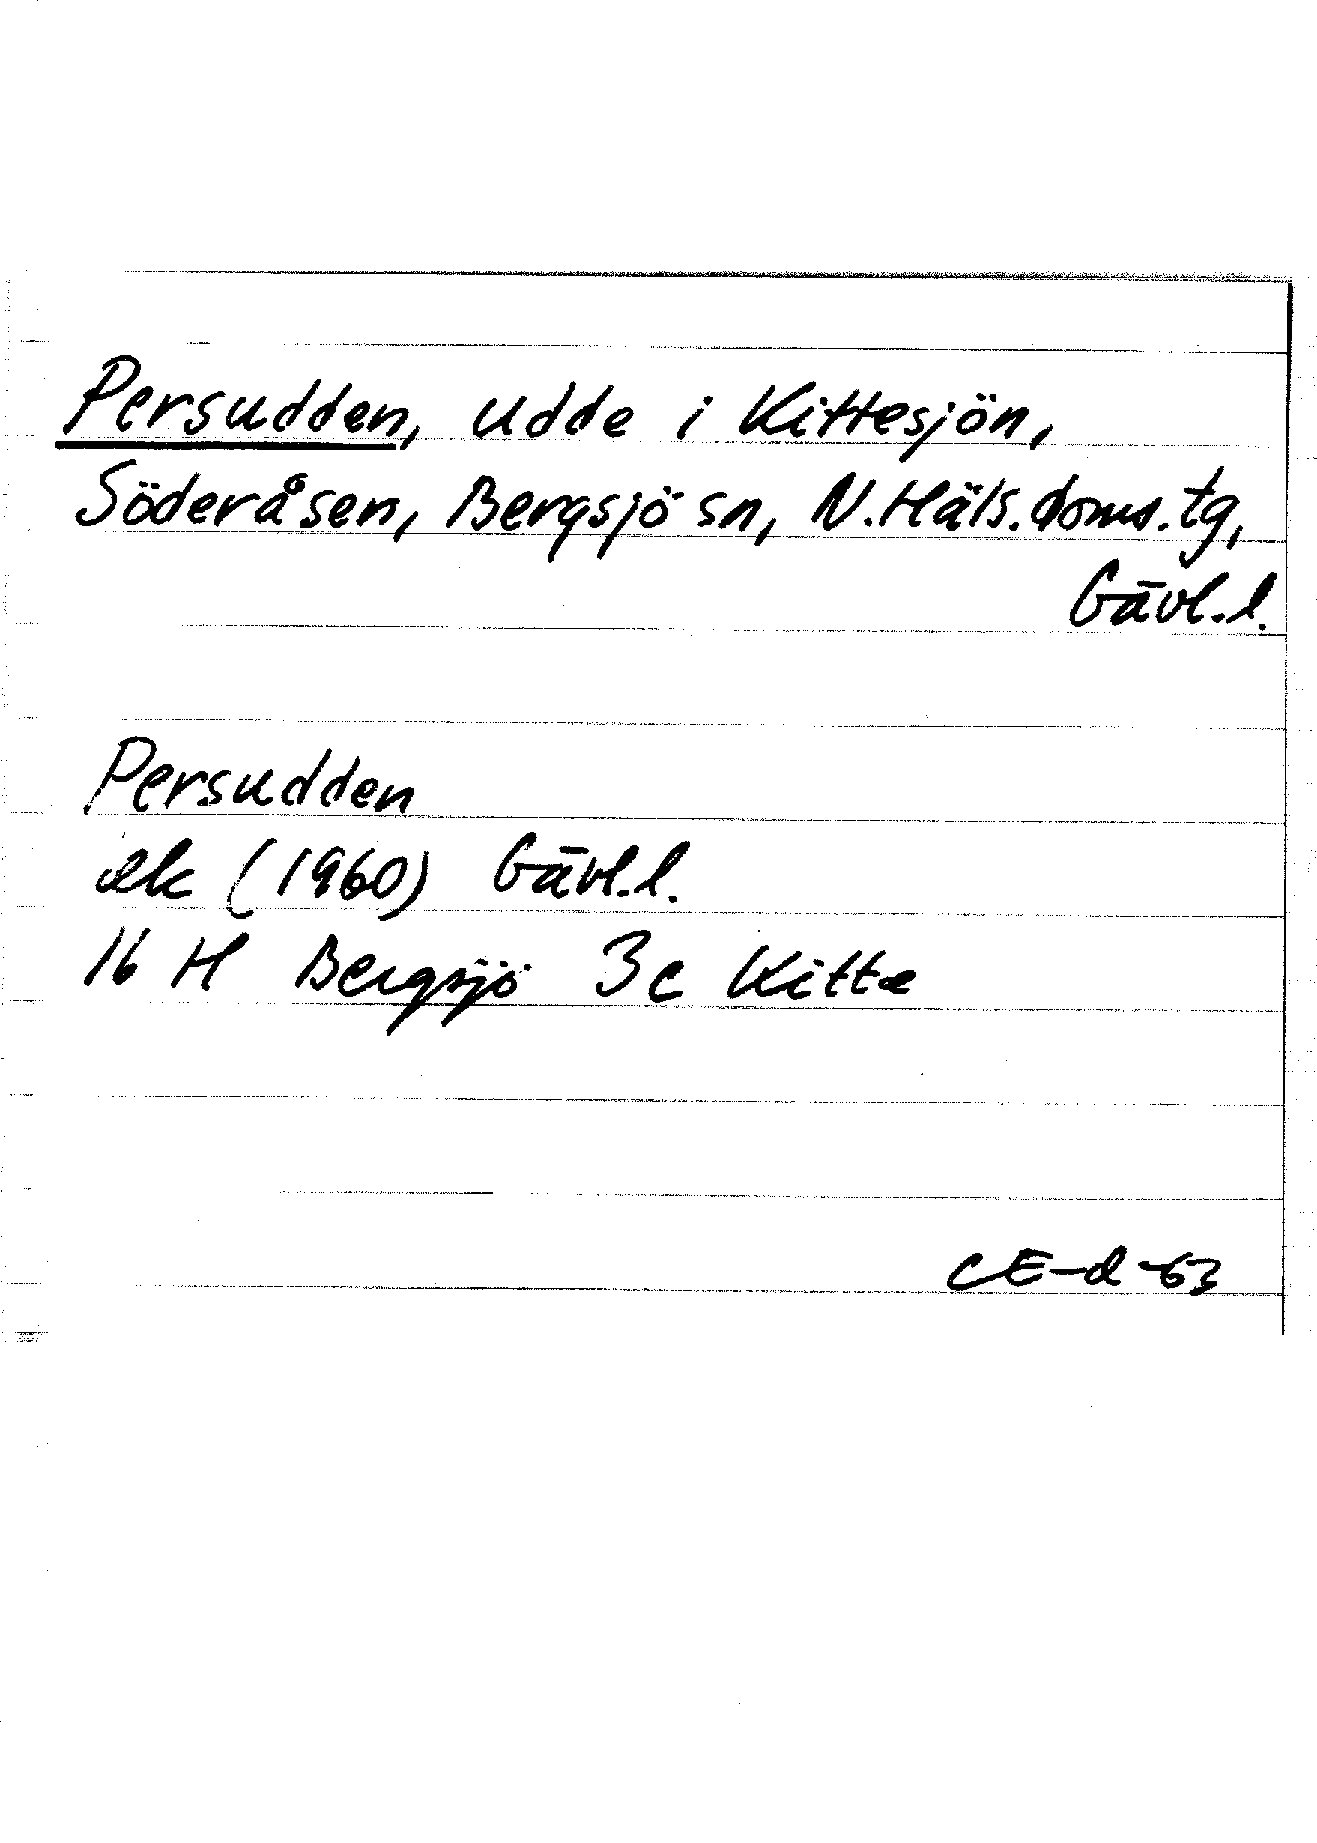 Persudden, udde i Kittesjön,
Söderåsen, Bergsjö sn, N.Häls.doms.tg,
Gävl.l.
Persudden
ek (1960) Gävl.l.
16 H Bergsjö 3c Kitte
CE-d-63